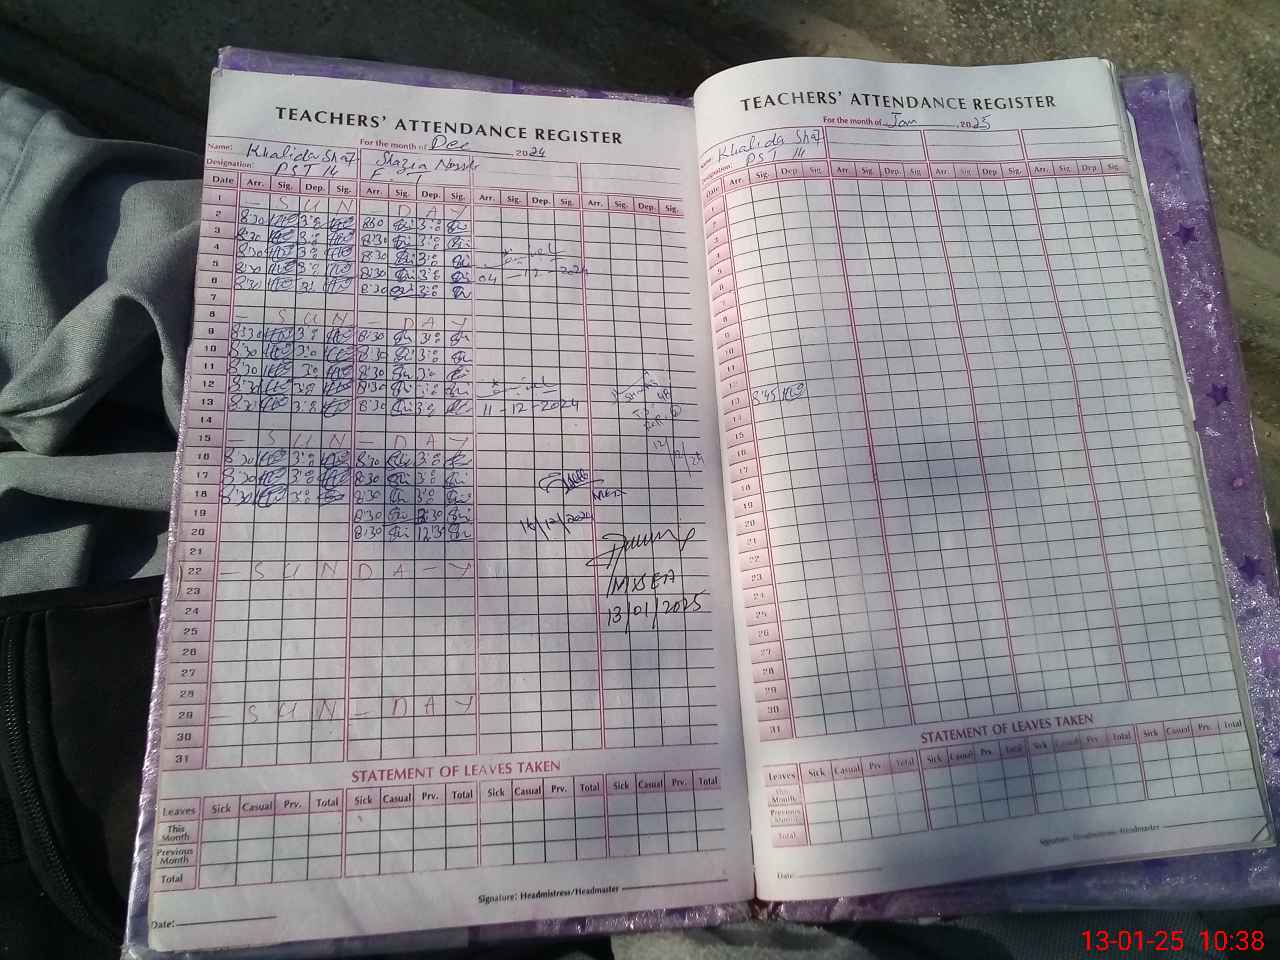 TEACHERS' ATTENDANCE REGISTER
For the month of Dec 2024
Name: Khalida Shaf Shazia
Designation: PST 14
Date Arr. Sig. Dep. Sig. Arr. Sig. Dep. Sig. Arr. Sig. Dep. Sig. Arr. Sig. Dep. Sig.
1 - S U N - D A Y
2 8:30 3:0 8:30 3:0
3 8:30 3:0 8:30 3:0
4 8:30 3:0 8:30 3:0
5 8:30 3:0 8:30 3:0 04-12-2024
6 8:30 3:0 8:30 3:0
7
8 - S U N - D A Y
9 8:30 3:0 8:30 3:0
10 8:30 3:0 8:30 3:0
11 8:30 3:0 8:30 3:0
12 8:30 3:0 8:30
13 8:30 3:0 8:30 3:0 11-12-2024
14
15 - S U N - D A Y
16 8:30 3:0 8:30 3:0
17 8:30 3:0 8:30 3:0
18 8:30 3:0 8:30 3:0
19 8:30
20 8:30 12:30
21
22 - S U N D A - Y
23
24 13/01/2025
25
26
27
28
29 - S U N - D A Y
30
31
STATEMENT OF LEAVES TAKEN
Leaves Sick Casual Prv. Total Sick Casual Prv. Total Sick Casual Prv. Total Sick Casual Prv. Total
This Month
Previous Month
Total
Signature: Headmistress/Headmaster
Date:
TEACHERS' ATTENDANCE REGISTER
For the month of Jan 2025
Name: Khalida Shaf
Designation: PST 14
Date Arr. Sig. Dep. Sig. Arr. Sig. Dep. Sig. Arr. Sig. Dep. Sig. Arr. Sig. Dep. Sig.
1
2
3
4
5
6
7
8
9
10
11
12
13 8:45
14
15
16
17
18
19
20
21
22
23
24
25
26
27
28
29
30
31
STATEMENT OF LEAVES TAKEN
Leaves Sick Casual Prv. Total Sick Casual Prv. Total Sick Casual Prv. Total Sick Casual Prv. Total
This Month
Previous Month
Total
Signature: Headmistress/Headmaster
Date:
13-01-25 10:38